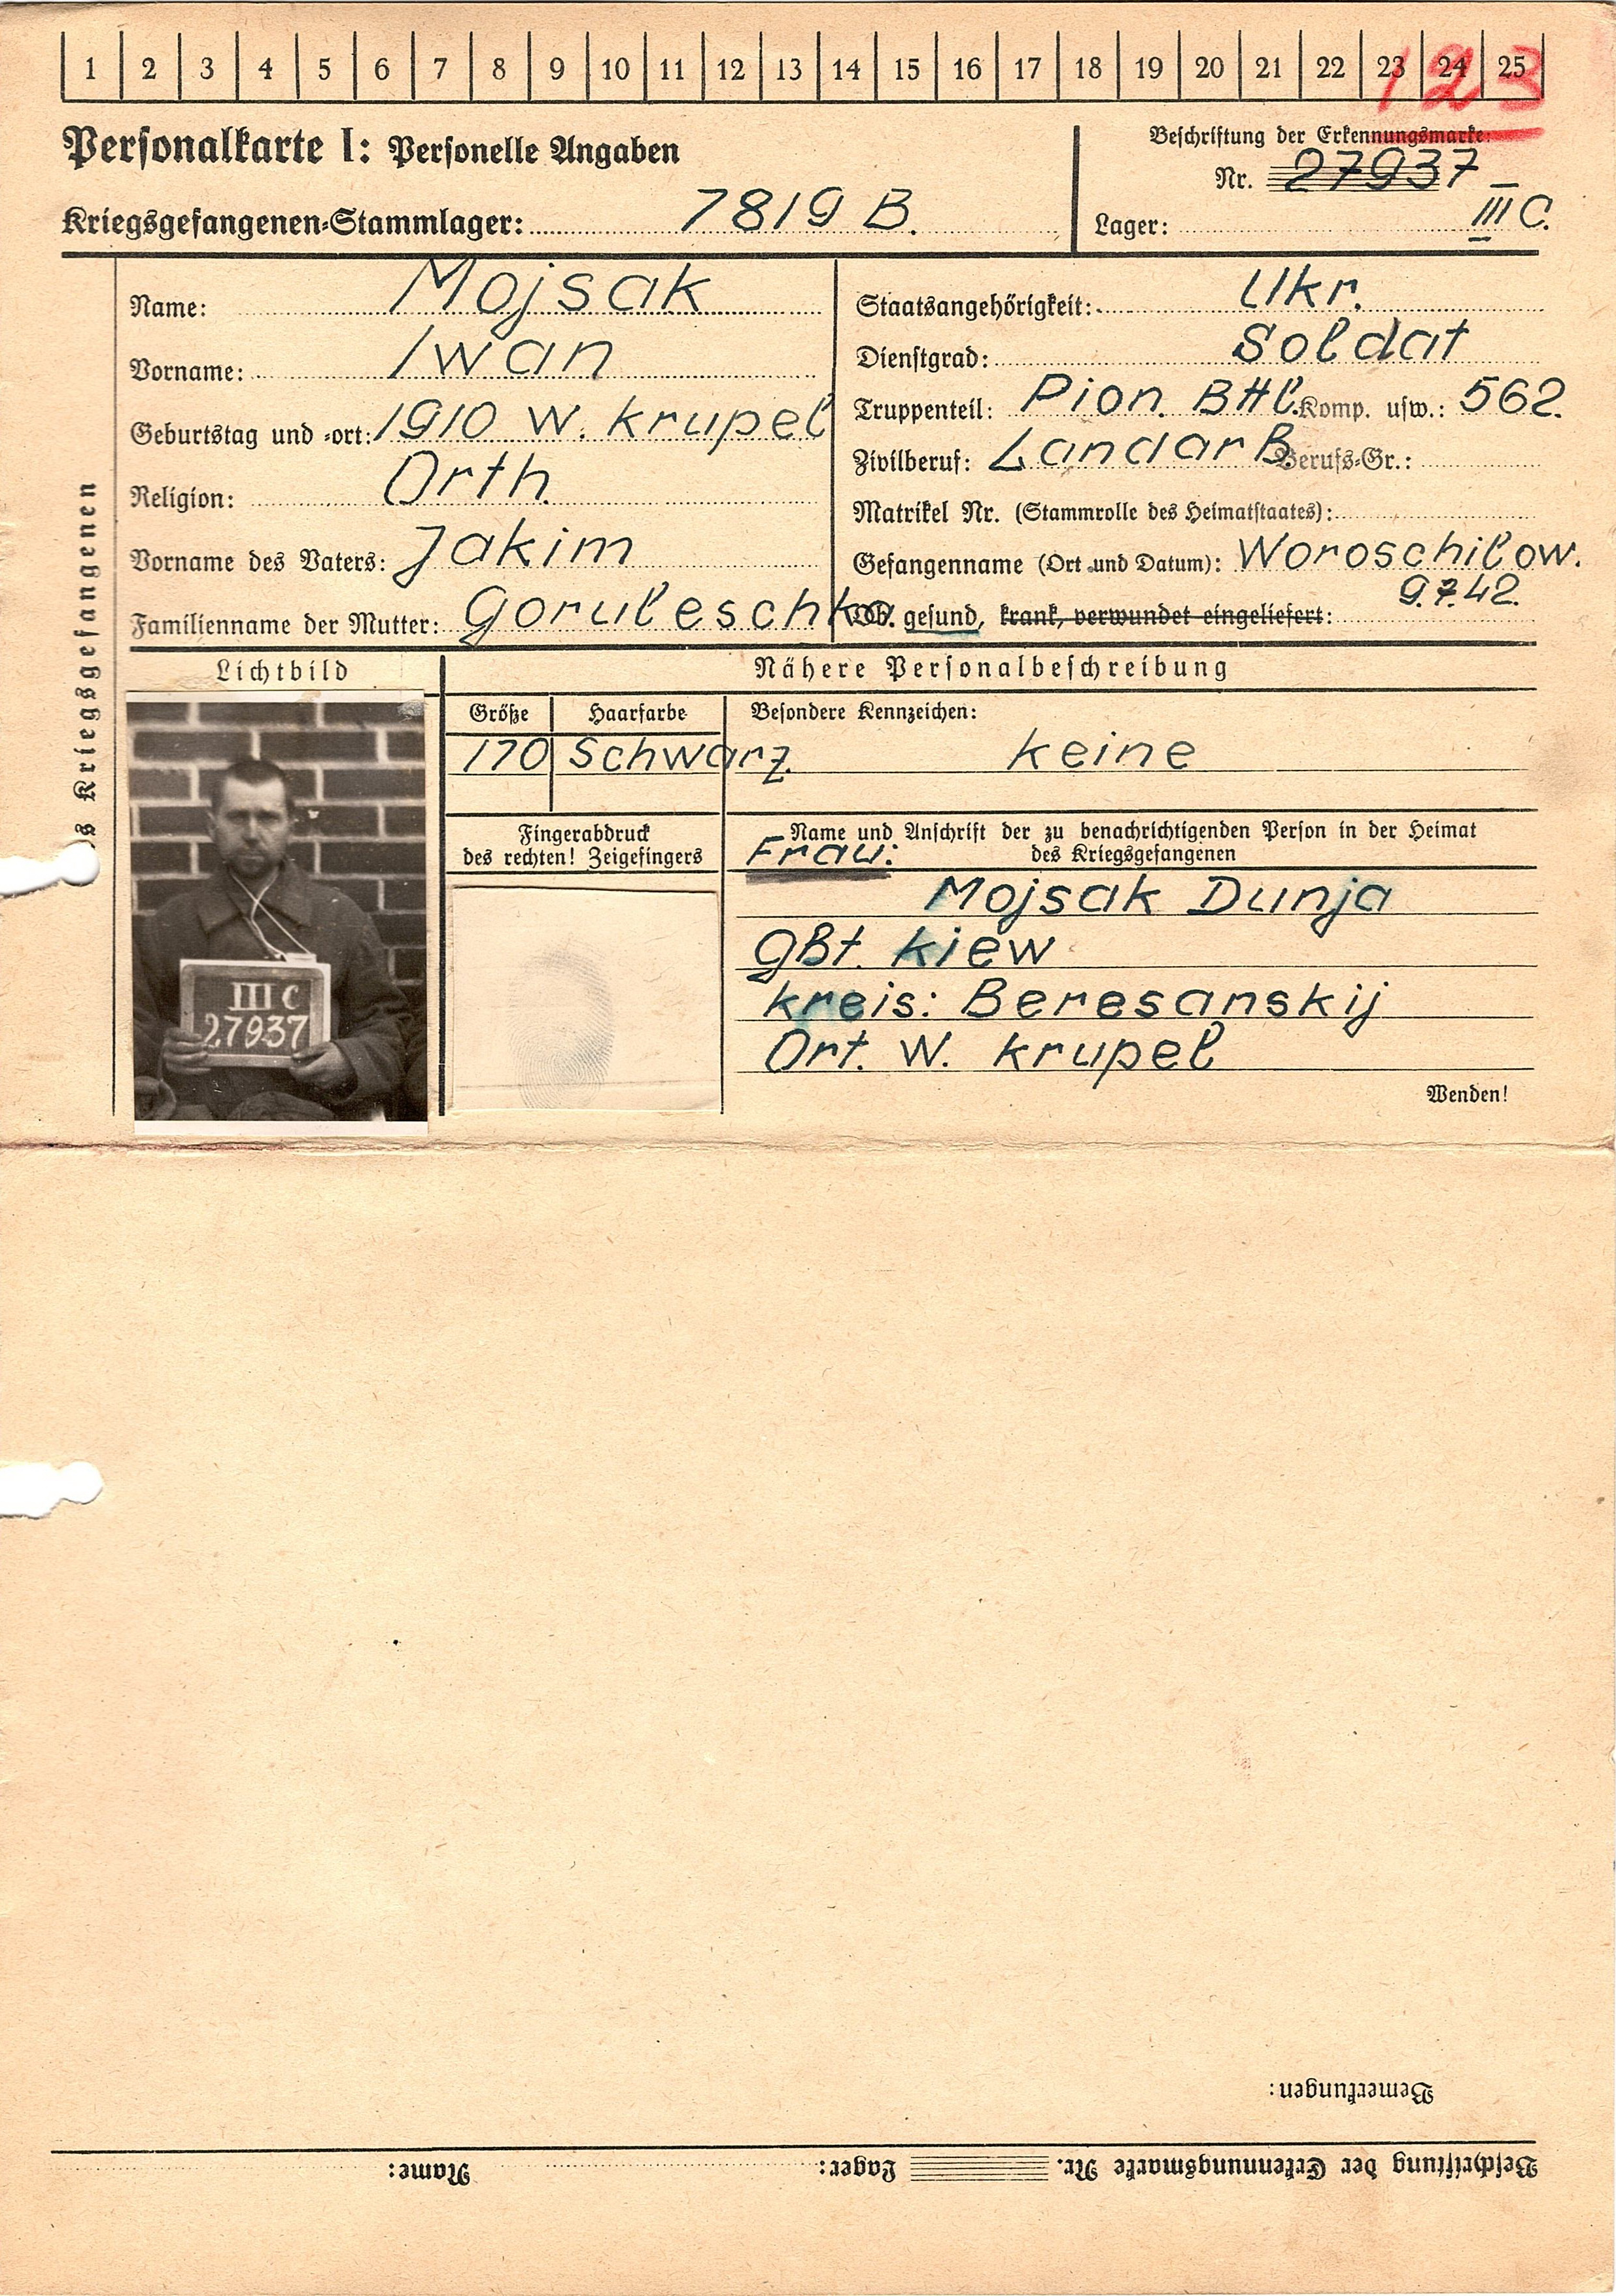 1 2 3 4 5 6 7 8 9 10 11 12 13 14 15 16 17 18 19 20 21 22 23 24 25
123
Personalkarte I: Personelle Angaben
Beschriftung der Erkennungsmarke:
Nr. 27937
Kriegsgefangenen-Stammlager: 7819 B.
Lager: III C.
Name: Mojsak
Vorname: Iwan
Geburtstag und -ort: 1910 W. Krupel
Religion: Orth.
Vorname des Vaters: Jakim
Familienname der Mutter: Goruleschko.
Staatsangehörigkeit: Ukr.
Dienstgrad: Soldat
Truppenteil: Pion. Btl. Komp. usw.: 562.
Zivilberuf: LandarB. Berufs-Gr.:
Matrikel Nr. (Stammrolle des Heimatstaates):
Gefangennahme (Ort und Datum): Woroschilow.
9.7.42.
Ob gesund, krank, verwundet eingeliefert:
Kriegsgefangenen
Lichtbild
III C
27937
Nähere Personalbeschreibung
Größe Haarfarbe Besondere Kennzeichen:
170 Schwarz. keine
Fingerabdruck
des rechten! Zeigefingers
Name und Anschrift der zu benachrichtigenden Person in der Heimat
des Kriegsgefangenen
Frau:
Mojsak Dunja
gbt. Kiew
Kreis: Beresanskij
Ort. W. Krupel
Wenden!
Bemerkungen:
Beschriftung der Erkennungsmarke Nr. Lager: Name: